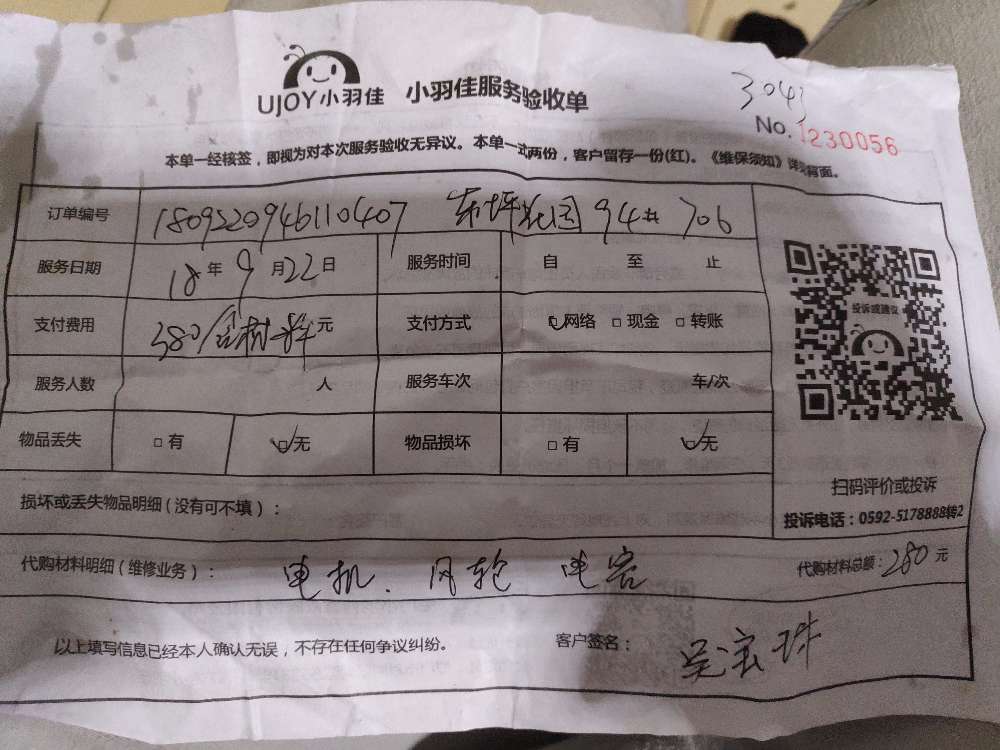 UJOY小羽佳 小羽佳服务验收单
3043
No. 1230056
本单一经核签，即视为对本次服务验收无异议。本单一式两份，客户留存一份(红)。《维保须知》详见背面。
订单编号 1809220946110407 东坪花园 94# 706
服务日期 18年9月22日 服务时间 自 至 止
支付费用 380/含材料元 支付方式 网络 现金 转账
投诉或建议
服务人数 人 服务车次 车/次
物品丢失 有 无 物品损坏 有 无
扫码评价或投诉
损坏或丢失物品明细(没有可不填)：
投诉电话：0592-5178888转2
代购材料明细(维修业务)： 电机、风轮 电容 代购材料总额：280元
以上填写信息已经本人确认无误，不存在任何争议纠纷。 客户签名： 吴宝珠